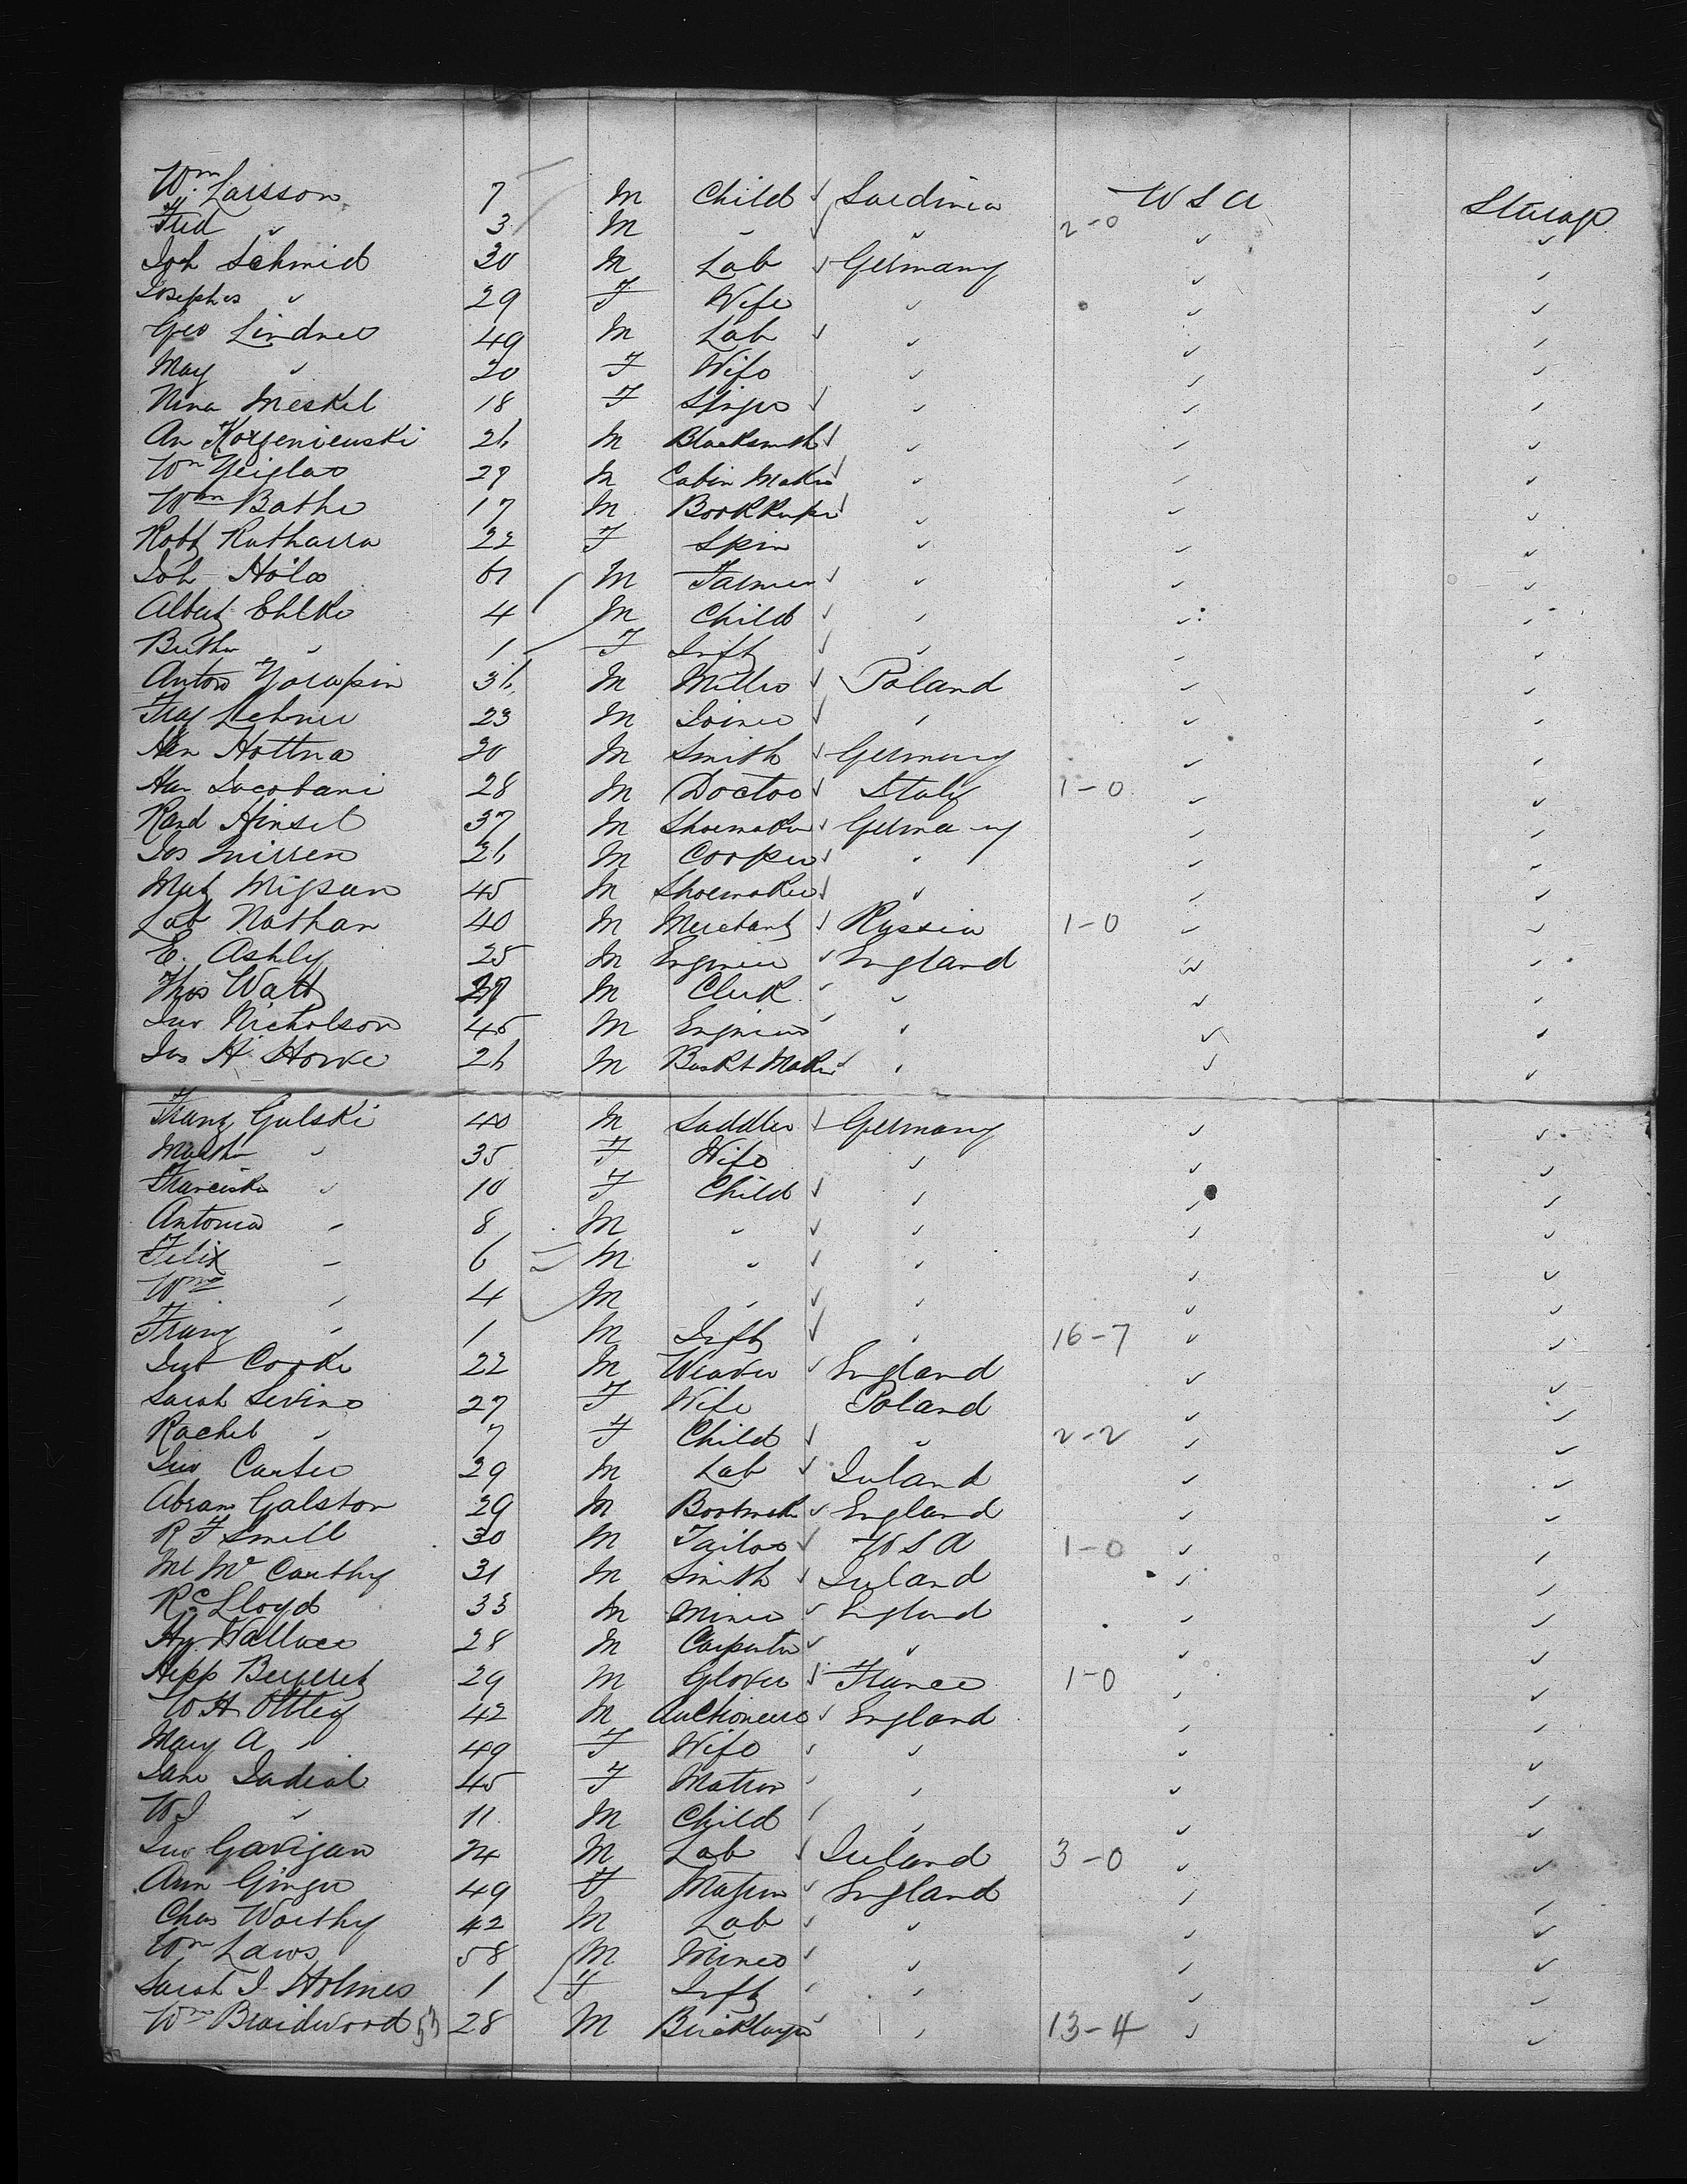 Wm Larsson 7 M Child Sardinia U S A Steerage
Fred " 3 M " " 2-0 " "
Joh Schmid 30 M Lab Germany " "
Josepha " 29 F Wife " " "
Geo Lindner 49 M Lab " " "
May " 20 F Wife " " "
Nina Meskel 18 F " " "
An Korzeniewski 26 M Blacksmith " " "
Wm 29 M Cabin Maker " " "
Wm Bathe 17 M Bookkeeper " " "
22 F Spin " " "
Joh 61 M Farmer " " "
Albert Ehlke 4 M Child " " "
1 F Inft " " "
Anton 36 M Miller Poland " "
23 M Joiner " " "
Hottna 20 M Smith Germany " "
Jacobani 28 M Doctor Italy 1-0 " "
Hinsel 37 M Shoemaker Germany " "
Jos Nissen 26 M Cooper " " "
45 M Shoemaker " " "
Lab Nathan 40 M Merchant Russia 1-0 " "
E. Ashly 25 M Engineer England " "
Thos Watt 27 M Clerk " " "
Jno Nicholson 45 M Engineer " " "
Jas H Howe 26 M Baskt Maker " " "
Franz Gulski 40 M Saddler Germany " "
Marth " 35 F Wife " " "
Franciska " 10 F Child " " "
Antonia " 8 M " " " "
Felix " 6 M " " " "
Wm " 4 M " " " "
Franz " 1 M Inft " 16-7 " "
Cooke 22 M Weaver England " "
Sarah Levine 27 F Wife Poland " "
Rachel " 7 F Child " 2-2 " "
Jno Carter 29 M Lab Ireland " "
Abram Galston 29 M Bootmak England " "
R F Smell 30 M Tailor U S A 1-0 " "
Ml McCarthy 31 M Smith Ireland " "
Rc Lloyd 33 M Miner England " "
Hy Wallace 28 M Carpenter " " "
29 M Glover France 1-0 " "
W H Ottley 42 M Auctioneer England " "
Mary A " 49 F Wife " " "
Jane 45 F Matron " " "
W J " 11 M Child " " "
Jno Gavigan 24 M Lab Ireland 3-0 " "
Ann Ginger 49 F Matron England " "
Chas Worthy 42 M Lab " " "
Wm Laws 58 M Miner " " "
Sarah J Holmes 1 F Inft " " "
Wm Braidwood 53 28 M Bricklayer " 13-4 " "